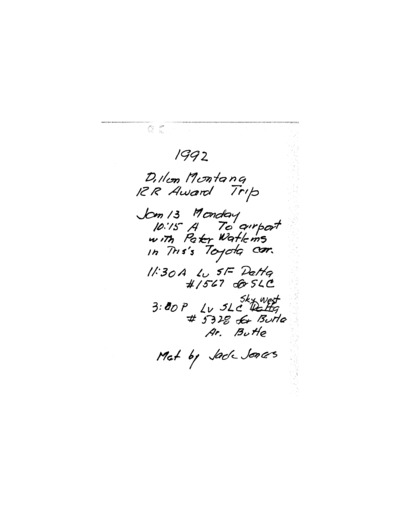 1992
Dillon Montana
RR Award Trip
Jan 13 Monday
10:15 A To airport
with Peter Watkins
in This's Toyota car.
11:30 A Lv SF Delta
#1567 for SLC
Sky West
3:00 P Lv SLC Delta
# 5328 for Butte
Ar. Butte
Met by Jack Jones